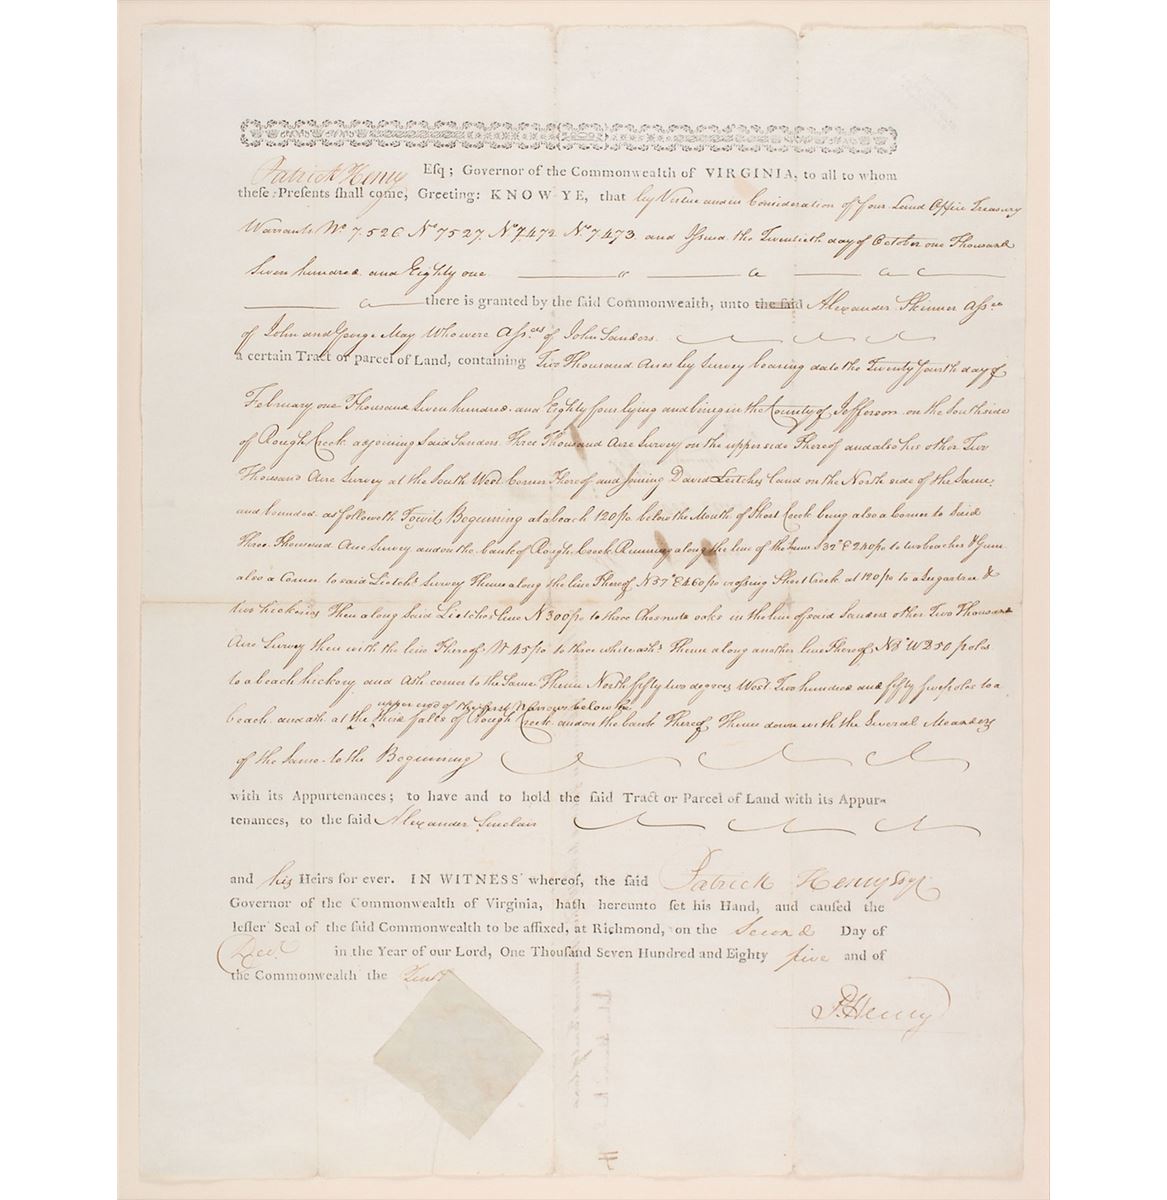 Patrick Henry Esq; Governor of the Commonwealth of VIRGINIA, to all to whom
these Presents shall come, Greeting: KNOW YE, that by Virtue and in Consideration of four Land Office Treasury
Warrants No 7.526 No 7527. No 7472. No 7473. and Issued the Twentieth day of October one Thousand
Seven hundred and Eighty one
there is granted by the said Commonwealth, unto the said Alexander Skinner Assee
of John and George May Who were Assees of John Sanders.
a certain Tract or parcel of Land, containing Two Thousand Acres by Survey bearing date the Twenty fourth day of
February one Thousand Seven hundred and Eighty four lying and being in the County of Jefferson on the South side
of Rough Creek adjoining Said Sanders Three Thousand Acre Survey on the upper side Thereof and also his other Two
Thousand Acre Survey at the South West Corner Thereof and Joining David Leitches land on the North side of the Same
and bounded as followeth Towit Beginning at a beach 120 po below the Mouth of Short Creek being also a corner to Said
Three Thousand Acre Survey and on the bank of Rough Creek Running along the line of the same S 32° E 240 po to two beaches & Gum
also a Corner to said Lietchs Survey Thence along the line Thereof N 37° E 460 po crossing Short Creek at 120 po to a Sugartree &
two hickories Then along Said Lietches line N 300 po to three Chesnut oaks in the line of said Sanders other Two Thousand
Acre Survey then with the line Thereof W 45 po to three white ashs Thence along another line Thereof N 8° W 250 poles
to a beach hickory and Ash corner to the Same Thence North fifty two degrees West Two hundred and fifty five poles to a
upper end of the first Narrows below the
beach and ash at the third falls of Rough Creek and on the bank Thereof Thence down with the Several Meanders
of the Same to the Beginning
with its Appurtenances; to have and to hold the said Tract or Parcel of Land with its Appur-
tenances, to the said Alexander Sinclair
and his Heirs for ever. IN WITNESS whereof, the said Patrick Henry Esqr
Governor of the Commonwealth of Virginia, hath hereunto set his Hand, and caused the
lesser Seal of the said Commonwealth to be affixed, at Richmond, on the Second Day of
Decr. in the Year of our Lord, One Thousand Seven Hundred and Eighty five and of
the Commonwealth the Tenth
P. Henry